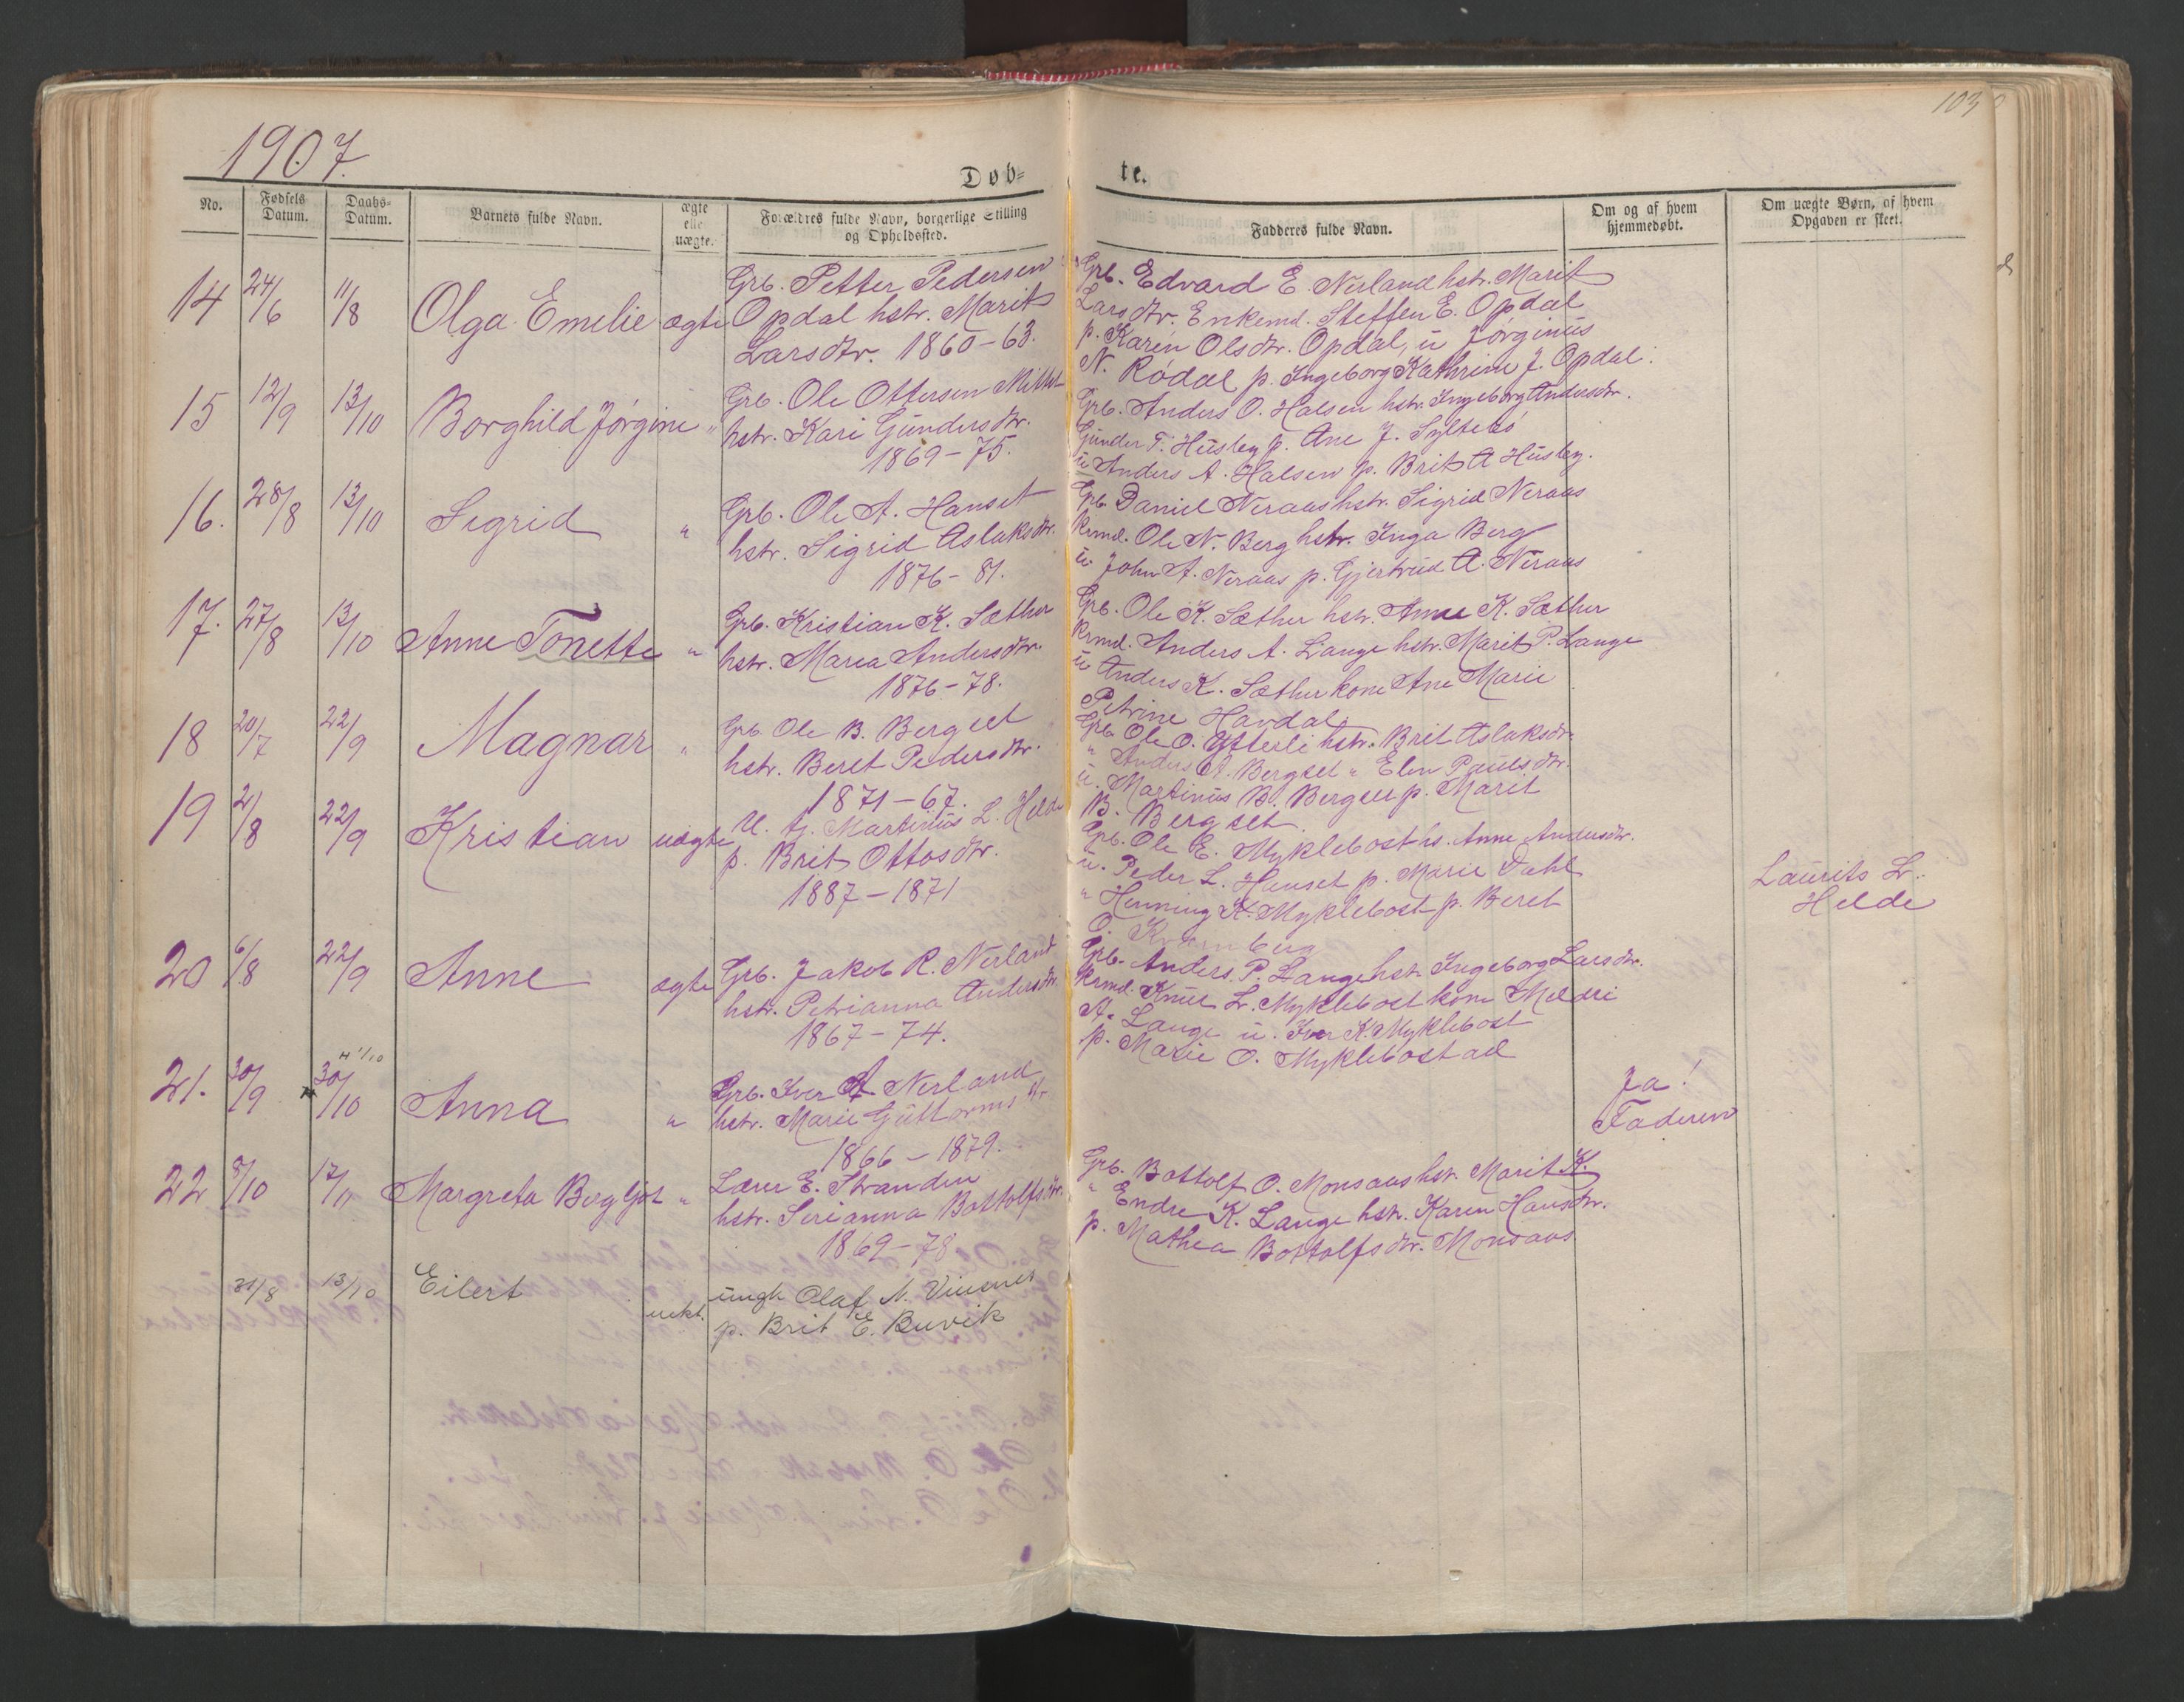 103
1907.
Døb=
te.
No.
Fødsels Datum.
Daabs= Datum.
Barnets fulde Navn.
ægte eller uægte.
Forældres fulde Navn, borgerlige Stilling og Opholdssted.
Fadderes fulde Navn.
Om og af hvem hjemmedøbt.
Om uægte Børn, af hvem Opgaven er skeet.
14 24/6 11/8 Olga Emelie ægte
Grb. Petter Pedersen
Opdal hstr. Marit
Larsdtr. 1860-63.
Grb. Edvard E. Nerland hstr. Marit
Larsdtr. Enkemd. Steffen E. Opdal
p. Karen Olsdtr. Opdal, u Jørginus
N. Rødal p. Ingeborg Kathrine J. Opdal.
15 12/9 13/10 Borghild Jørgine "
Grb. Ole Ottersen
hstr. Kari Gundersdtr.
1869-75.
Grb. Anders O. Halsen hstr. Ingeborg Andersdtr.
Gunder T. Husby p. Ane J. Syltebø
u Anders A. Halsen p. Brit A Husby.
16. 28/8 13/10 Sigrid "
Grb. Ole A. Hanset
hstr. Sigrid Aslaksdtr.
1876-81.
Grb. Daniel Neraas hstr. Sigrid Neraas
Krmd. Ole N. Berg hstr. Inga Berg
u. John A. Neraas p. Gjertrud A. Neraas
17. 27/8 13/10 Anne Tonette "
Grb. Kristian K. Sæther
hstr. Maria Andersdtr.
1876-78.
Grb. Ole K. Sæther hstr. Anne K. Sæther
Krmd. Anders A. Lange hstr. Marit P. Lange
u Anders K. Sæther kone Ane Marie
Petrine Havdal.
18 20/7 22/9 Magnar "
Grb. Ole B. Bergset
hstr. Beret Pedersdtr.
1871-67.
Grb Ole O. Ytterli hstr. Brit Aslaksdtr.
" Anders A. Bergset " Elen Paulsdtr.
u. Martinus B. Bergset p. Marit
B. Bergset.
19 2/8 22/9 Kristian uægte
U. G. Martinus L. Helde
p. Brit Ottosdtr.
1887-1871
Grb. Ole E. Myklebost hs. Anne Andersdtr.
u. Peder L. Hanset p. Marie Dahl
" Henning K. Myklebost p. Beret
O. Kvernberg
Laurits L.
Helde
20 6/8 22/9 Anne ægte
Grb. Jakob R. Nerland
hstr. Petrianna Andersdtr.
1867-74.
Grb. Anders P. Lange hstr. Ingeborg Larsdtr.
Krmd. Knut L. Myklebost kone Meldri
A. Lange u. Iver K. Myklebost
p. Marie O. Myklebostad
21. 30/9 30/10 Anna "
Grb. Iver A. Nerland
hstr. Marie Guttormsdtr
1866-1879.
Ja!
Faderen
22 8/10 17/11 Margreta Bergljot "
Lærer E. Stranden
hstr. Serianna Bottolfsdtr.
1869-78
Grb. Bottolf O. Monsaas hstr. Marit K.
" Endre K. Lange hstr. Karen Hansdtr.
p. Mathea Bottolfsdtr. Monsaas
31/8 13/10 Eilert uekt.
ungk Olaf N. Vinsnes
p. Brit E. Buvik